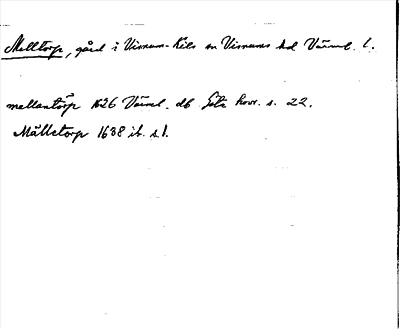 Melltorp, gård i Visnum-Kils sn Visnums hd Värml. l.
mellantorp 1626 Värml. db Göta hovr. s. 22.
Mälletorp 1638 ib. s 1.